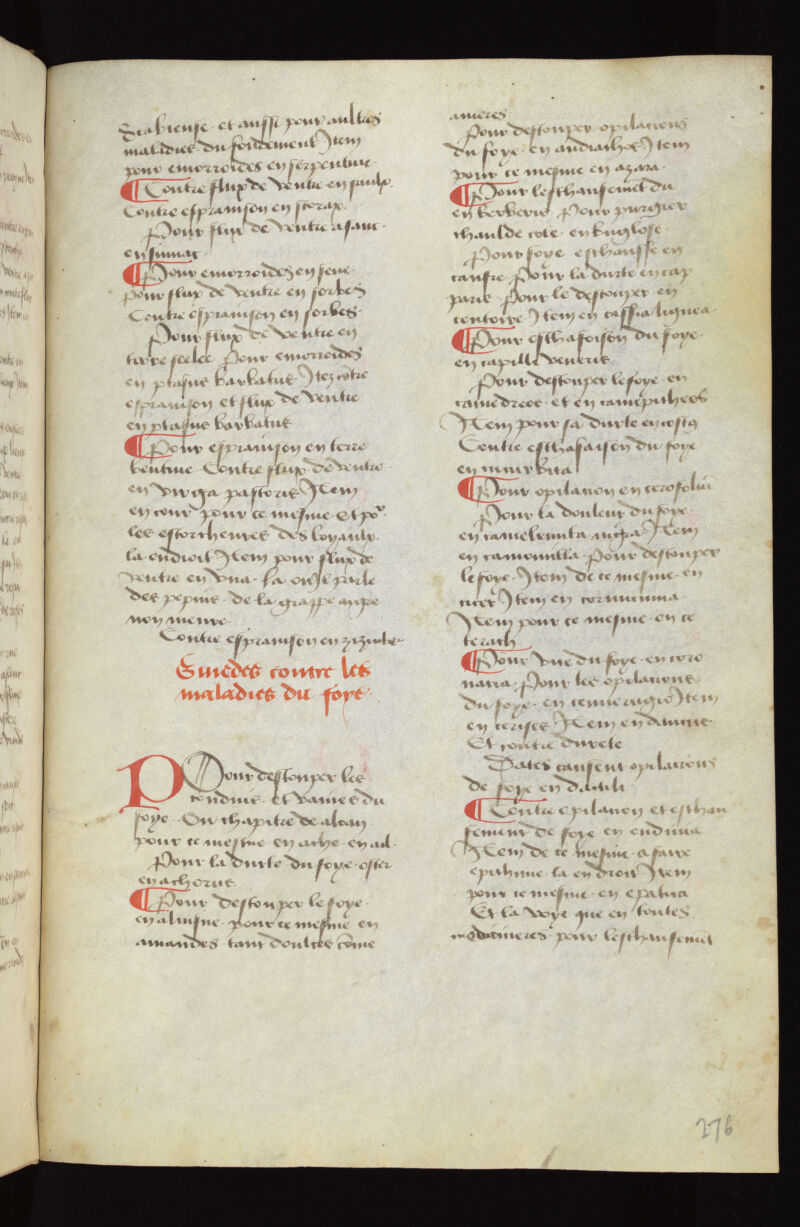 Scabieuse et aussi pour aultres
maladies du fondement Item
pour emorroides en serpentine
¶ Contre flux de ventre en saulx
Contre esprainson en storax
Pour flux de ventre a sanc
en sumac
¶ Pour emorroides en seue
Pour flux de ventre en sorbes
Contre esprainson en sorbes
Pour flux de ventre en
terre seelee Pour emorroides
en ptasus barbatus Itez cõtre
esprainson et flux de ventre
en ptasus barbatus
¶ Pour esprainson en terre
bentine Contre flux de ventre
en virga pastoris Item
en cour pour ce mesme Et po͛
les escorcheures des boyaulx
la endroit Item pour flux de
ventre en vua la ou il parle
des pepins de la grappe aigre
non meure
Contre esprainson en zizimbe
Guides contre les
maladies du foye
Pour destouper les
conduis et vaines du
foye Ou chapitre de aloan
pour ce mesme en ache en ail
Pour la durte du foye oster
en achorus
¶ Pour destouper le foye
en aluisne pour ce mesme en
amandes tant doulces cõme
ameres
Pour destouper opilacions
du foye en andiachos Item
pour ce mesme en azara
¶ Pour leschaufemẽt du
en berberis Pour purgier
chaulde cole en buglose
Pour foye eschauffe en
canfre Pour la durte en cap
paris Pour le destouper en
centoire Item en cassia lignea
¶ Pour eschafoison du foye
en capilli veneris
Pour destouper le foye en
camedreos et en camepitheos
Item pour sa durte en costꝯ
Contre eschafaison du foye
en cucurbita
¶ Pour opilacion en cerofoliũ
Pour la douleur du foye
en cameleunta nigra Item
en camomilla Pour destouper
le foye Item de ce mesme en
cicer Item en cornicuma
Item pour ce mesme en ce
terach
¶ Pour vue du foye en coro
naria Pour les opilacions
du foye en cennerugio Item
en cerises Item en daucus
Et contre durete
Dates causent opilacions
de foye en dactili
¶ Contre opilacion et eschau
fement de foye en endiuia
Item de ce mesme a faire
epithime la en droit Item
pour ce mesme en epatica
Et la voye que en toutes
medicineres pour leschaufemẽt
276